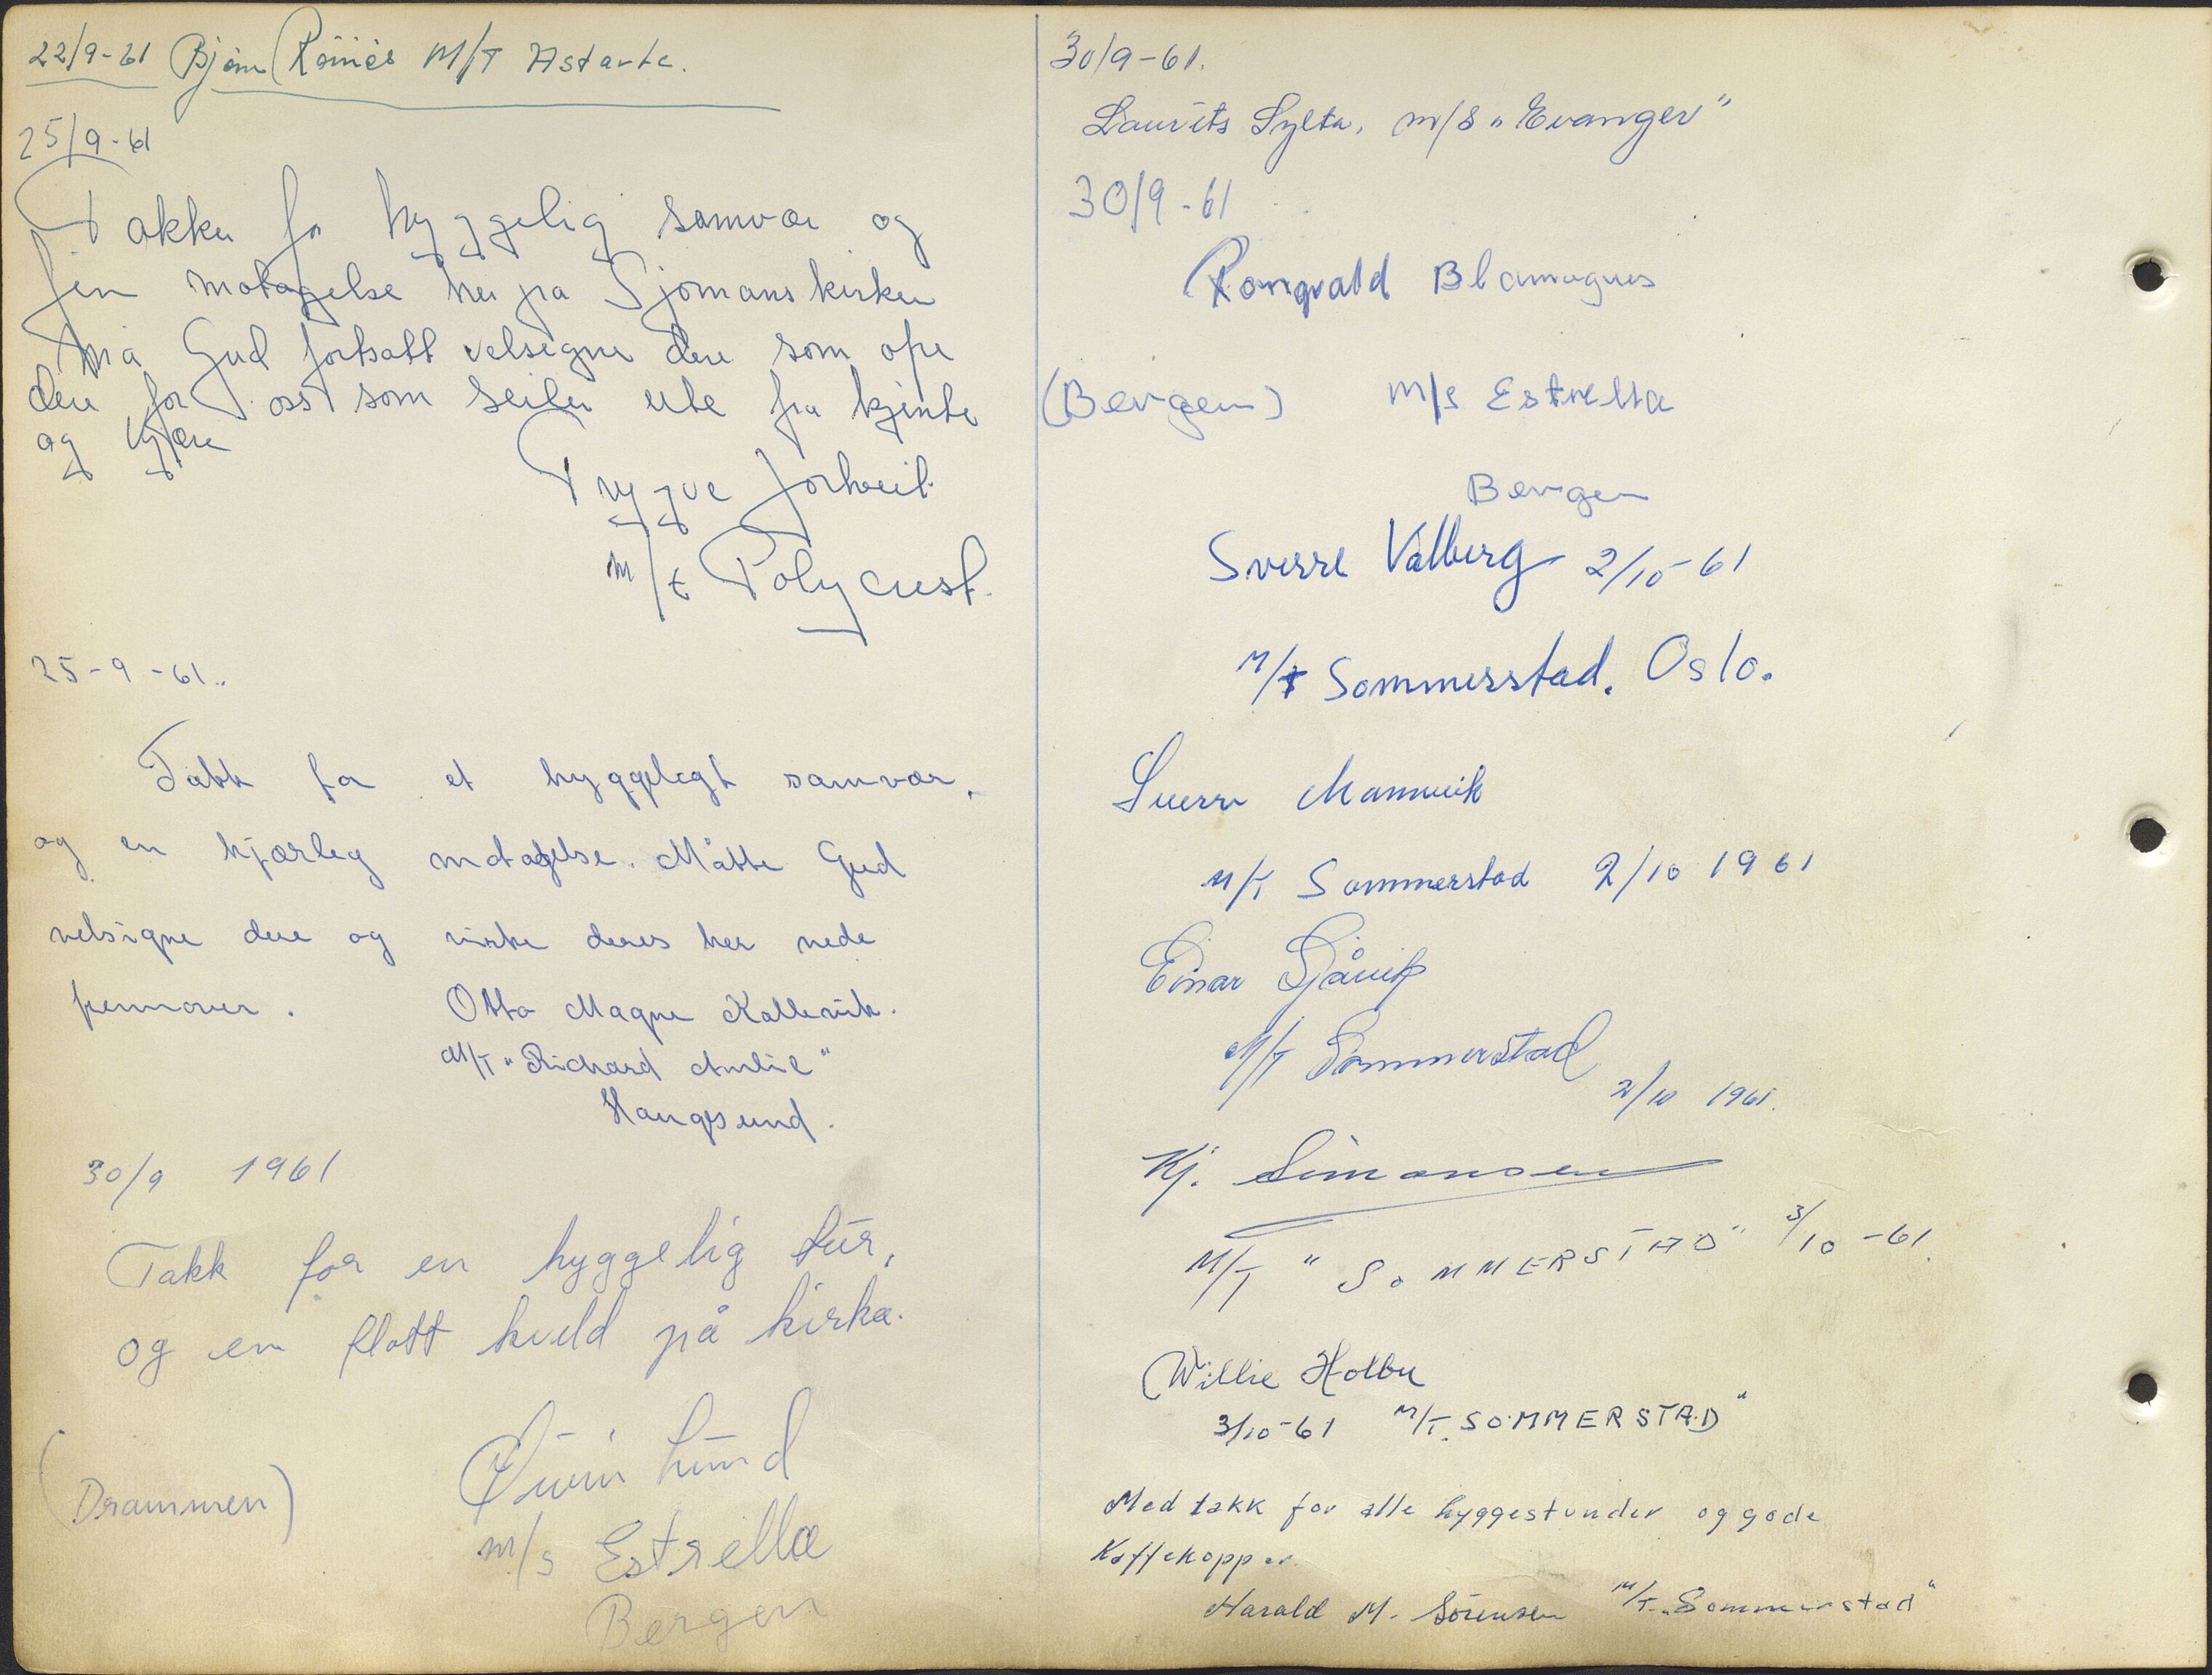 22/9-61 Bjørn Rönies M/T Astarte.
25/9-61
Takker for hyggelig samvær og
fin motagelse her på Sjomanskirken
må Gud fortsatt velsigne dere som ofre
dere for oss som seiler ute fra kjente
og kjære
Trygve
m/t Polycrest.
25-9-61.
Takk for et hyggelegt samvær,
og en kjærleg motagelse. Måtte Gud
velsigne dere og virke deres her nede
fremover.
Otto Magne Kallevik.
M/T "Richard Amlie"
Haugesund.
30/9 1961
Takk for en hyggelig tur,
og en flott kveld på kirka.
Øivin Lund
(Drammen)
m/s Estrella
Bergen
30/9-61.
Laurits Sylta, m/s "Evanger"
30/9-61
Rongvald
(Bergen) M/s Estrella
Bergen
Sverre Valberg 2/10-61
M/T Sommerstad. Oslo.
Sverre
M/T Sommerstad 2/10 1961
Einar
M/T Sommerstad
2/10 1961.
Kj. Simonsen
M/T "SOMMERSTAD" 3/10-61.
Willie Holbu
3/10-61 M/T. SOMMERSTAD"
Med takk for alle hyggestunder og gode
Kaffekopper.
Harald M. Sörensen M/T. "Sommerstad"